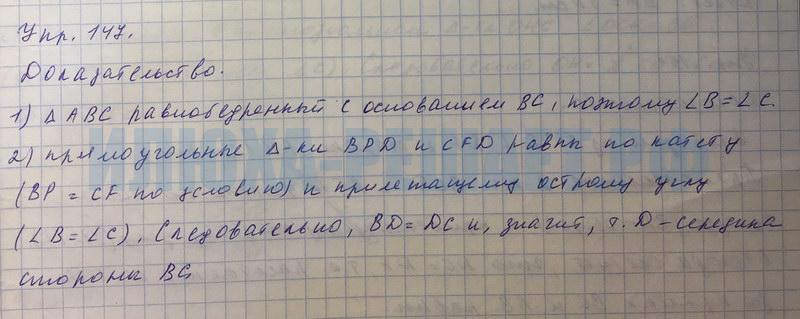 Упр. 147.
Доказательство.
1) Δ ABC равнобедренный с основанием BC, поэтому ∠B = ∠C.
2) прямоугольные Δ-ки BPD и CFD равны по катету
(BP = CF по условию) и прилежащему острому углу
(∠B=∠C). Следовательно, BD = DC и, значит, т. D – середина
стороны BC